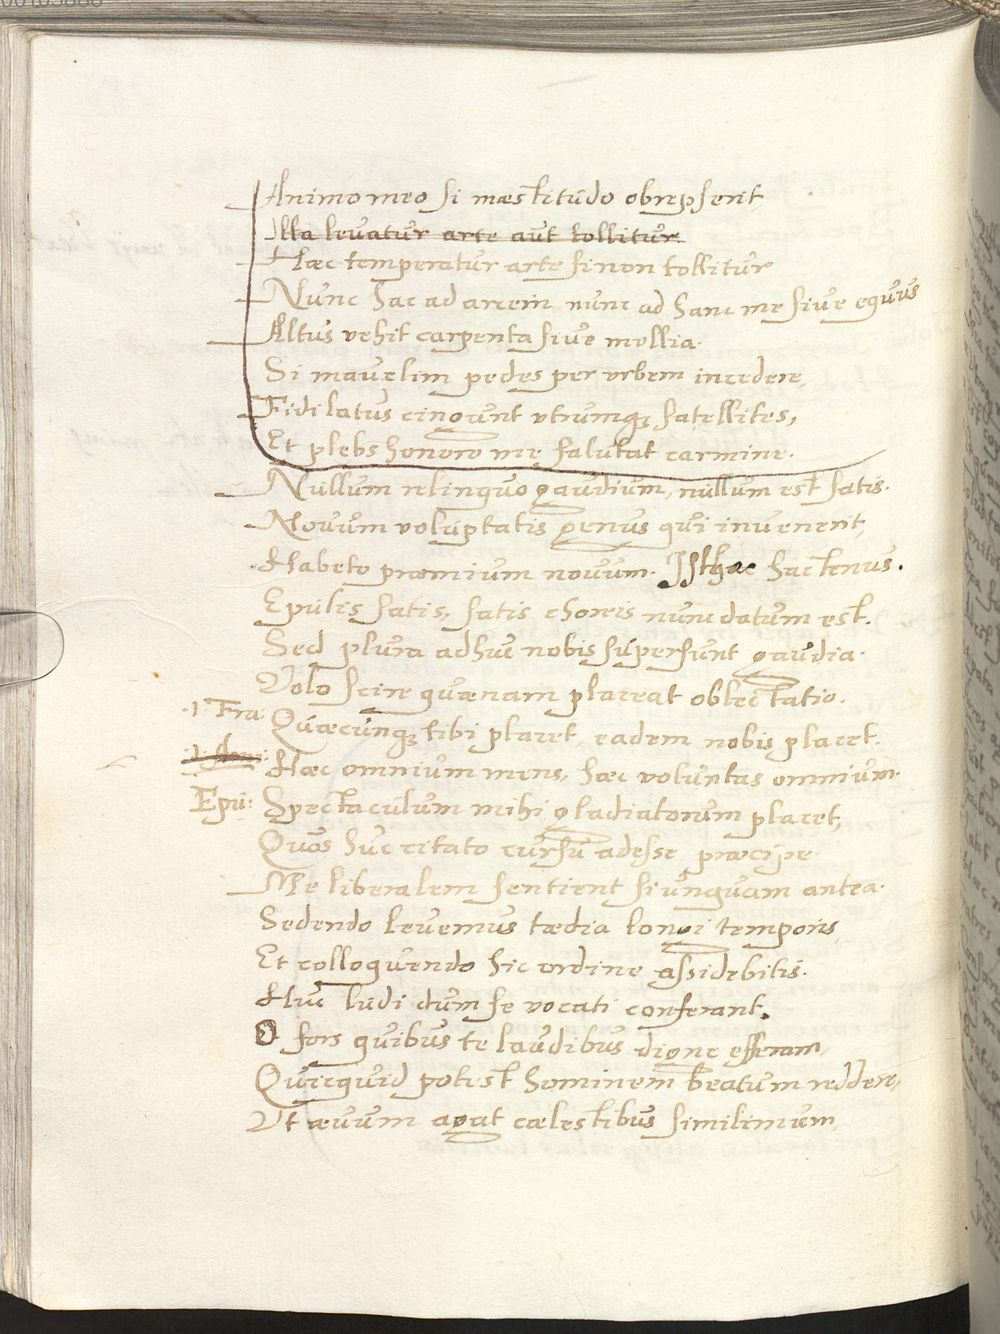 Animo meo si mæstitudo obrepserit
Illa levatur arte aut tollitur
Hæc temperatur arte si non tollitur
Nunc hac ad arcem nunc ad hanc me sive equus
Altus vehit carpenta sive mollia.
Si mavelim pedes per urbem incedere,
Fidi latus cingunt utrumq; satellites,
Et plebs honoro me salutat carmine.
Nullum relinquo gaudium, nullum est satis.
Novum voluptatis genus qui invenerit,
Habeto præmium novum. Isthæc hactenus.
Epulis satis, satis choreis nunc datum est.
Sed plura adhuc nobis supersunt gaudia.
Volo scire quænam placeat oblectatio.
.1. Fra. Quæcunq; tibi placet, eadem nobis placet.
Hæc omnium mens, hæc voluntas omnium.
Epu: Spectaculum mihi gladiatorum placet,
Quos huc citato cursu adesse præcipe
Me liberalem sentient si unquam antea.
Sedendo levemus tædia longi temporis
Et colloquendo hic ordine assidebitis.
Huc ludi dum se vocati conferant.
O fors quibus te laudibus digne efferam,
Quicquid potest hominem beatum reddere,
Ut ævum agat cælestibus simillimum